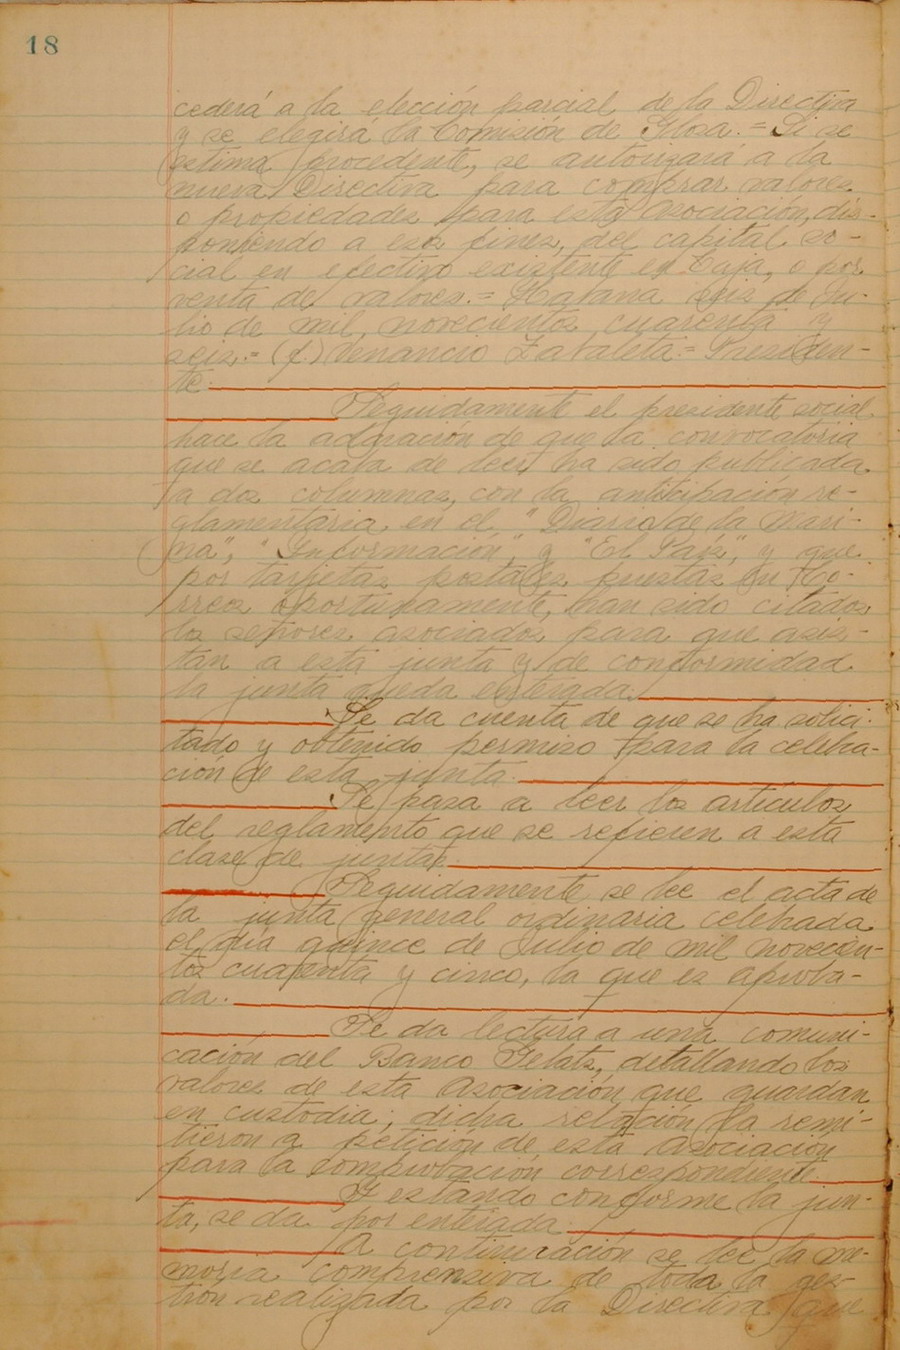 18
cederá a la elección parcial de la Directiva
y se elegira la Comisión de Glosa.= Si se
estima procedente, se autorizará a la
nueva Directiva para comprar valores
o propiedades para esta Asociación, dis-
poniendo a esos fines, del capital so-
cial en efectivo existente en Caja, o por
venta de valores.= Habana seis de Ju-
lio de mil novecientos cuarenta y
seis.= (f.) Venancio Zabaleta.= Presiden-
te.
Seguidamente el presidente social
hace la aclaración de que la convocatoria
que se acaba de leer ha sido publicada
a dos columnas, con la anticipación re-
glamentaria en el "Diario de la Mari-
na", "Información", y "El País", y que
por tarjetas postales puestas en Co-
rreos oportunamente, han sido citados
los señores asociados para que asis-
tan a esta junta y de conformidad
la junta queda enterada.
Se da cuenta de que se ha solici-
tado y obtenido permiso para la celebra-
ción de esta junta.
Se pasa a leer los artículos
del reglamento que se refieren a esta
clase de juntas.
Seguidamente se lee el acta de
la junta general ordinaria celebrada
el día quince de Julio de mil novecien-
tos cuarenta y cinco, la que es aproba-
da.
Se da lectura a una comuni-
cación del Banco Gelats, detallando los
valores de esta Asociación que guardan
en custodia; dicha relación la remi-
tieron a petición de esta Asociación
para la comprobación correspondiente.
Y estando conforme la jun-
ta, se da por enterada.
A continuación se lee la me-
moria comprensiva de toda la ges-
tion realizada por la Directiva que